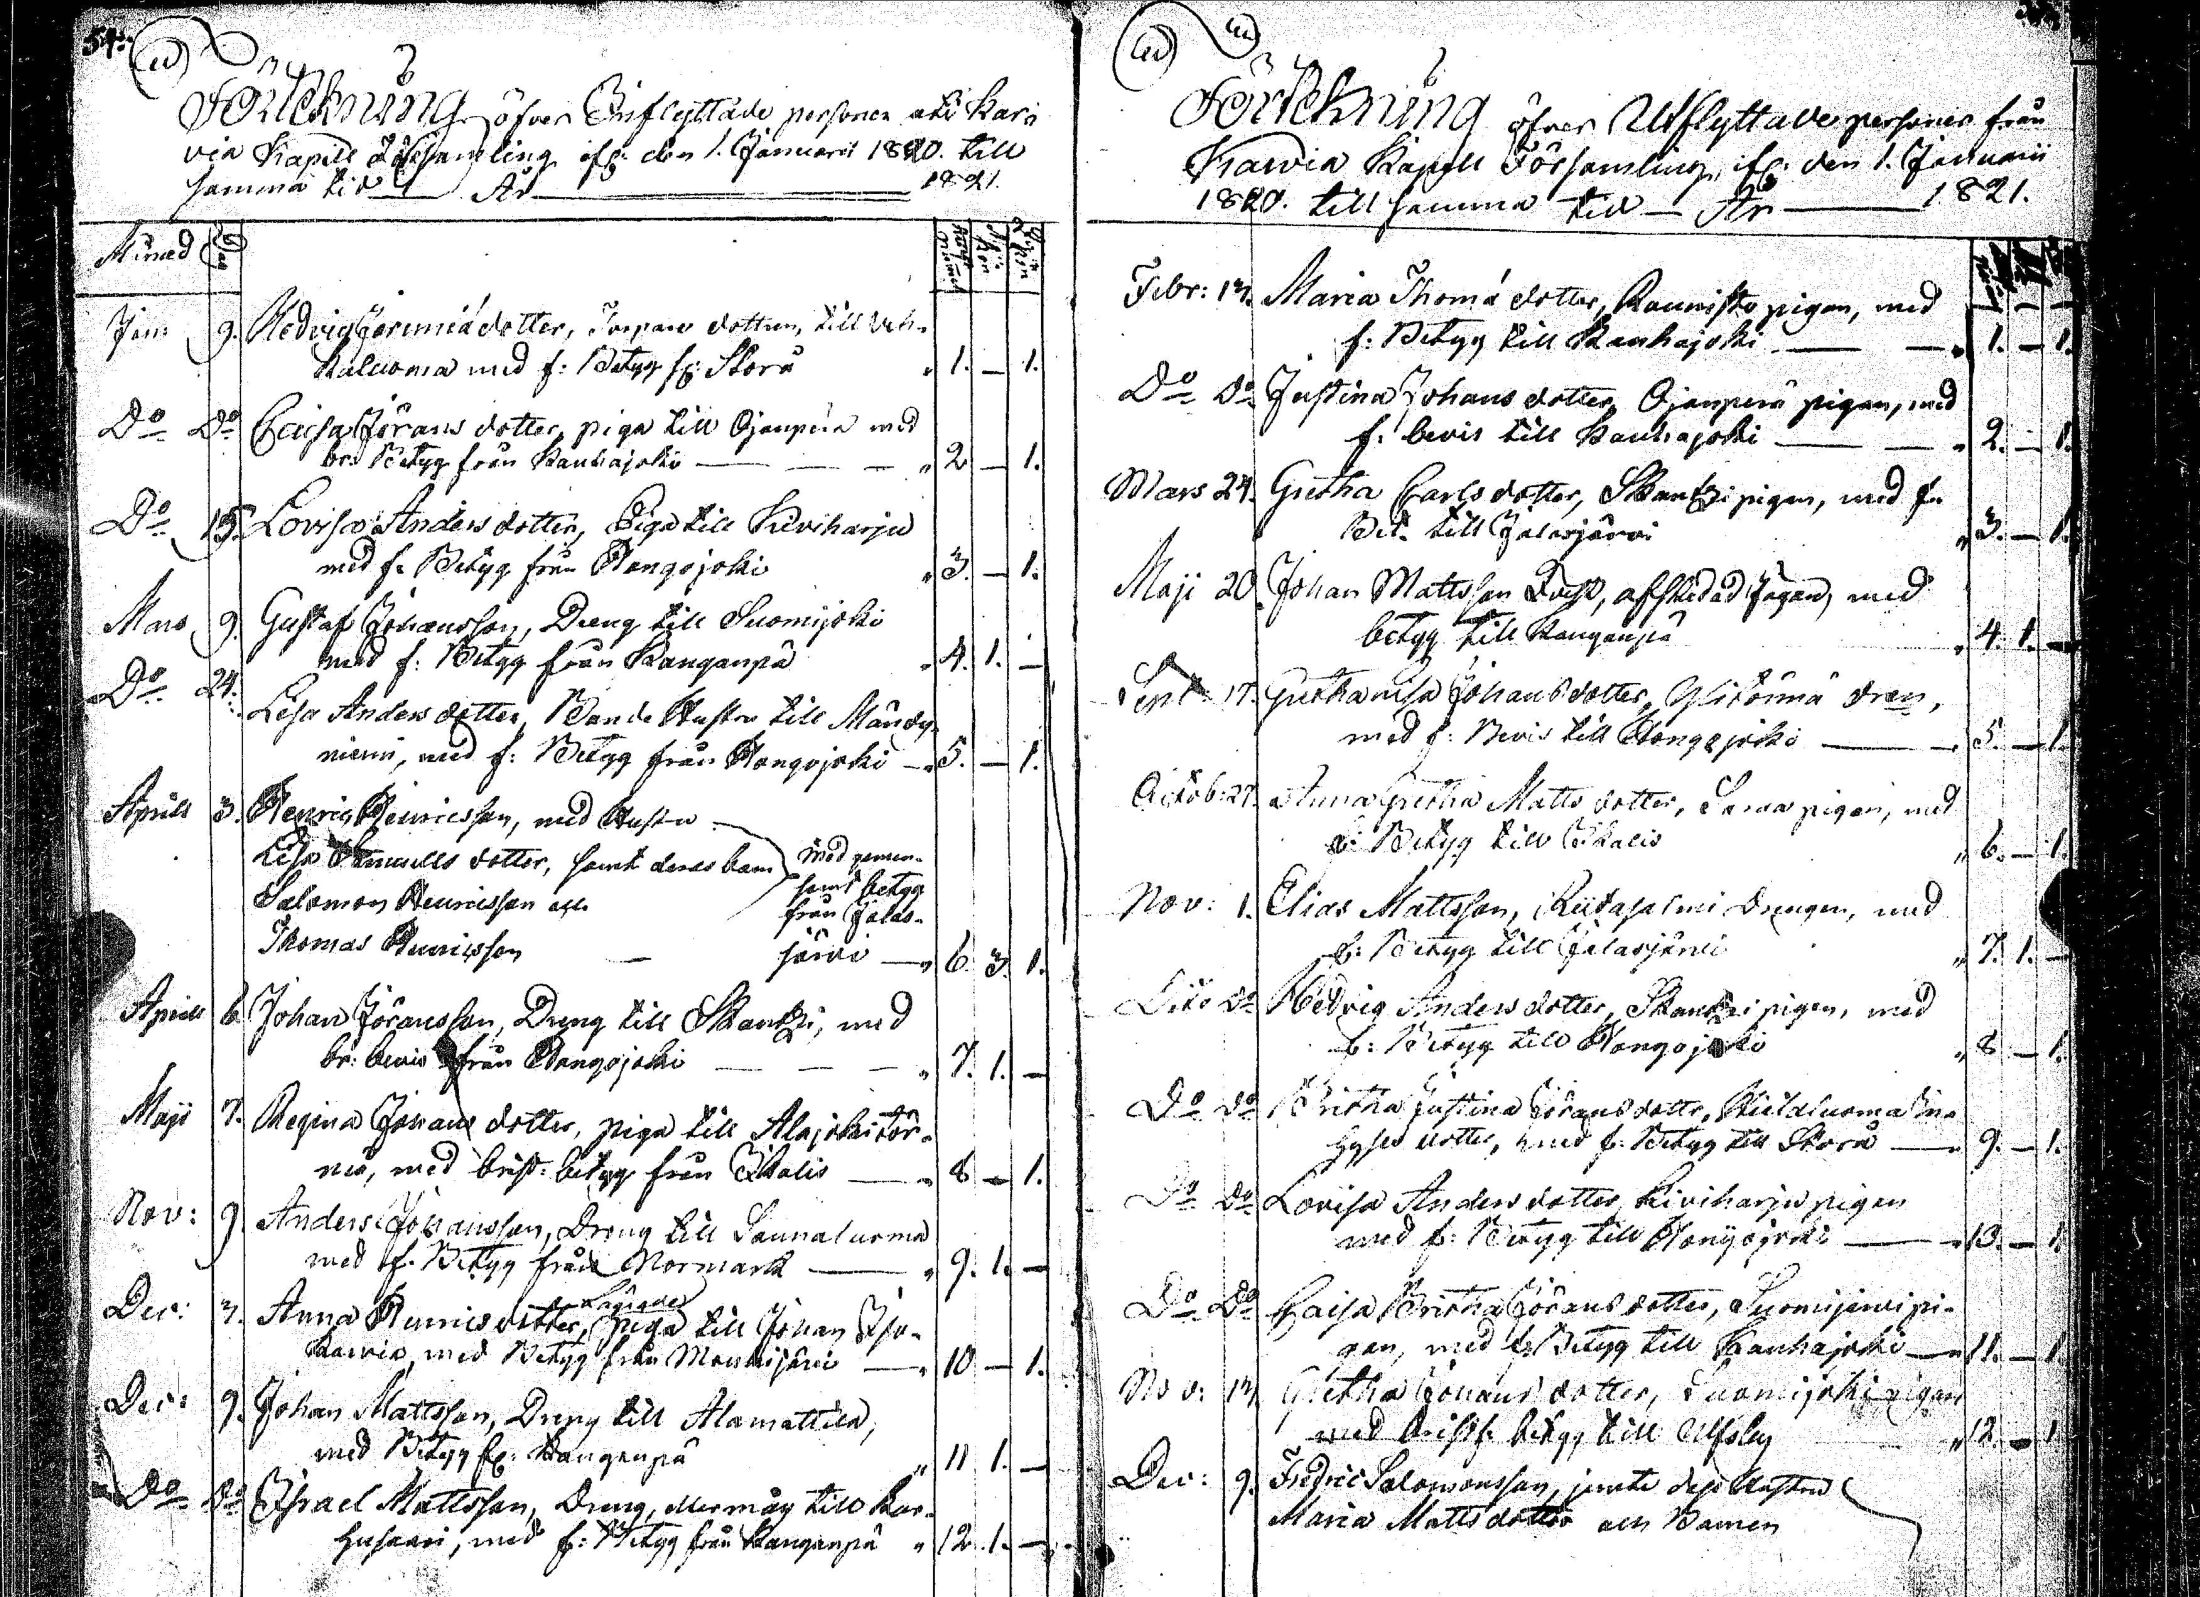 54.
Förtekning öfver Inflyttade personer uti Kar-
via Kapell Församling ifr: den 1. Januarii 1820. till
samma tid År 1821.
Månad Dag
Jan: 9. Hedvig Jeremiædotter, dottren, till
kaluoma med f: Betyg fr: Storå " 1. — 1.
Do Do Caisa Jörans dotter, piga till Ojanperä med
br: Betyg från Kauhajoki — — — " 2 — 1.
Do 15. Lovisa Anders dotter, Piga till Kiviharju
med f. Betyg från Hongojoki " 3. — 1.
Mars 9. Gustaf Johansson, Dreng till Suomijoki
med f: Betyg från Kanganpä " 4. 1. —
Do 24. Lisa Anders dotter, Bonde Hustru till Mändy-
niemi, med f: Betyg från Hongojoki — " 5. — 1.
Aprill 3. Henric Henricsson, med Hustru
Lisa Samuells dotter, samt deras barn med gemen-
Salomon Henricsson och samt betyg
från Jalas-
Thomas Henricsson — järvi — " 6. 3. 1.
Aprill 6 Johan Jöransson, Dreng till Skantzi, med
br: bevis från Hongojoki — — — " 7. 1. —
Maji 7. Regina Johans dotter, piga till Alajokitör-
mä, med brist: betyg från Ikalis — " 8 — 1.
Nov: 9 Anders Johansson, Dreng till Saunaluoma
med f. Betyg från Normark — " 9. 1. —
Dec: 3. Anna Henrics dotter, piga till Johan Iso-
karvia, med Betyg från Mouhijärvi — " 10 — 1.
Dec: 9. Johan Mattsson, Dreng till Alamattila,
med Betyg fr: Kanganpä " 11 1. —
Do Do Israel Mattsson, Dreng, eller måg till Kar-
husaari, med f: Betyg från Kanganpä " 12. 1. —
Förtekning öfver Utflyttade personer från
Karvia Kapell Församling, ifr: den 1. Januarii
1820. till samma tid — År — 1821.
Febr: 13. Maria Thomædotter, Raunisto pigan, med
f: Betyg till Kauhajoki — — " 1. — 1.
Do Do Justina Johans dotter, Ojanperä pigan, med
f: bevis till Kauhajoki — — " 2. — 1.
Mars 24. Gretha Carls dotter, Skantzi pigan, med f.
Bet. till Jalasjärvi " 3. — 1.
Maji 20 Johan Mattsson Qvist, afskedad Jägare, med
betyg till Kanganpä " 4. 1. —
Sept 17. Grethalisa Johans dotter, Ylitörmä dren,
med f: Bevis till Hongojoki — " 5. — 1.
Octob: 27. Anna Gretha Matts dotter, Sara pigan, med
f: Betyg till Ikalis " 6. — 1.
Nov: 1. Elias Mattsson, Riitasalmi Drengen, med
f: Betyg till Jalasjärvi " 7. 1. —
Dito Do Hedvig Anders dotter, Skantzi pigan, med
f: Betyg till Hongojoki " 8 — 1.
Do Do Britha Justina Jörans dotter, Kieldluoma In-
hyses dotter, med f: Betyg till Storå — " 9. — 1.
Do Do Lovisa Anders dotter, Kiviharju pigan
med f: Betyg till Hongojoki — " 10. — 1.
Do Do Caisa Britha Jörans dotter, Suomijärvi pi-
gan, med f: Betyg till Kauhajoki — " 11. — 1
Nov: 13 Gretha Johans dotter, Suomijoki pigan
med brist f. betyg till Ulfsby " 12 — 1
Dec: 9. Fredric Salomonsson, jemte dess Hustru
Maria Matts dotter och Barnen